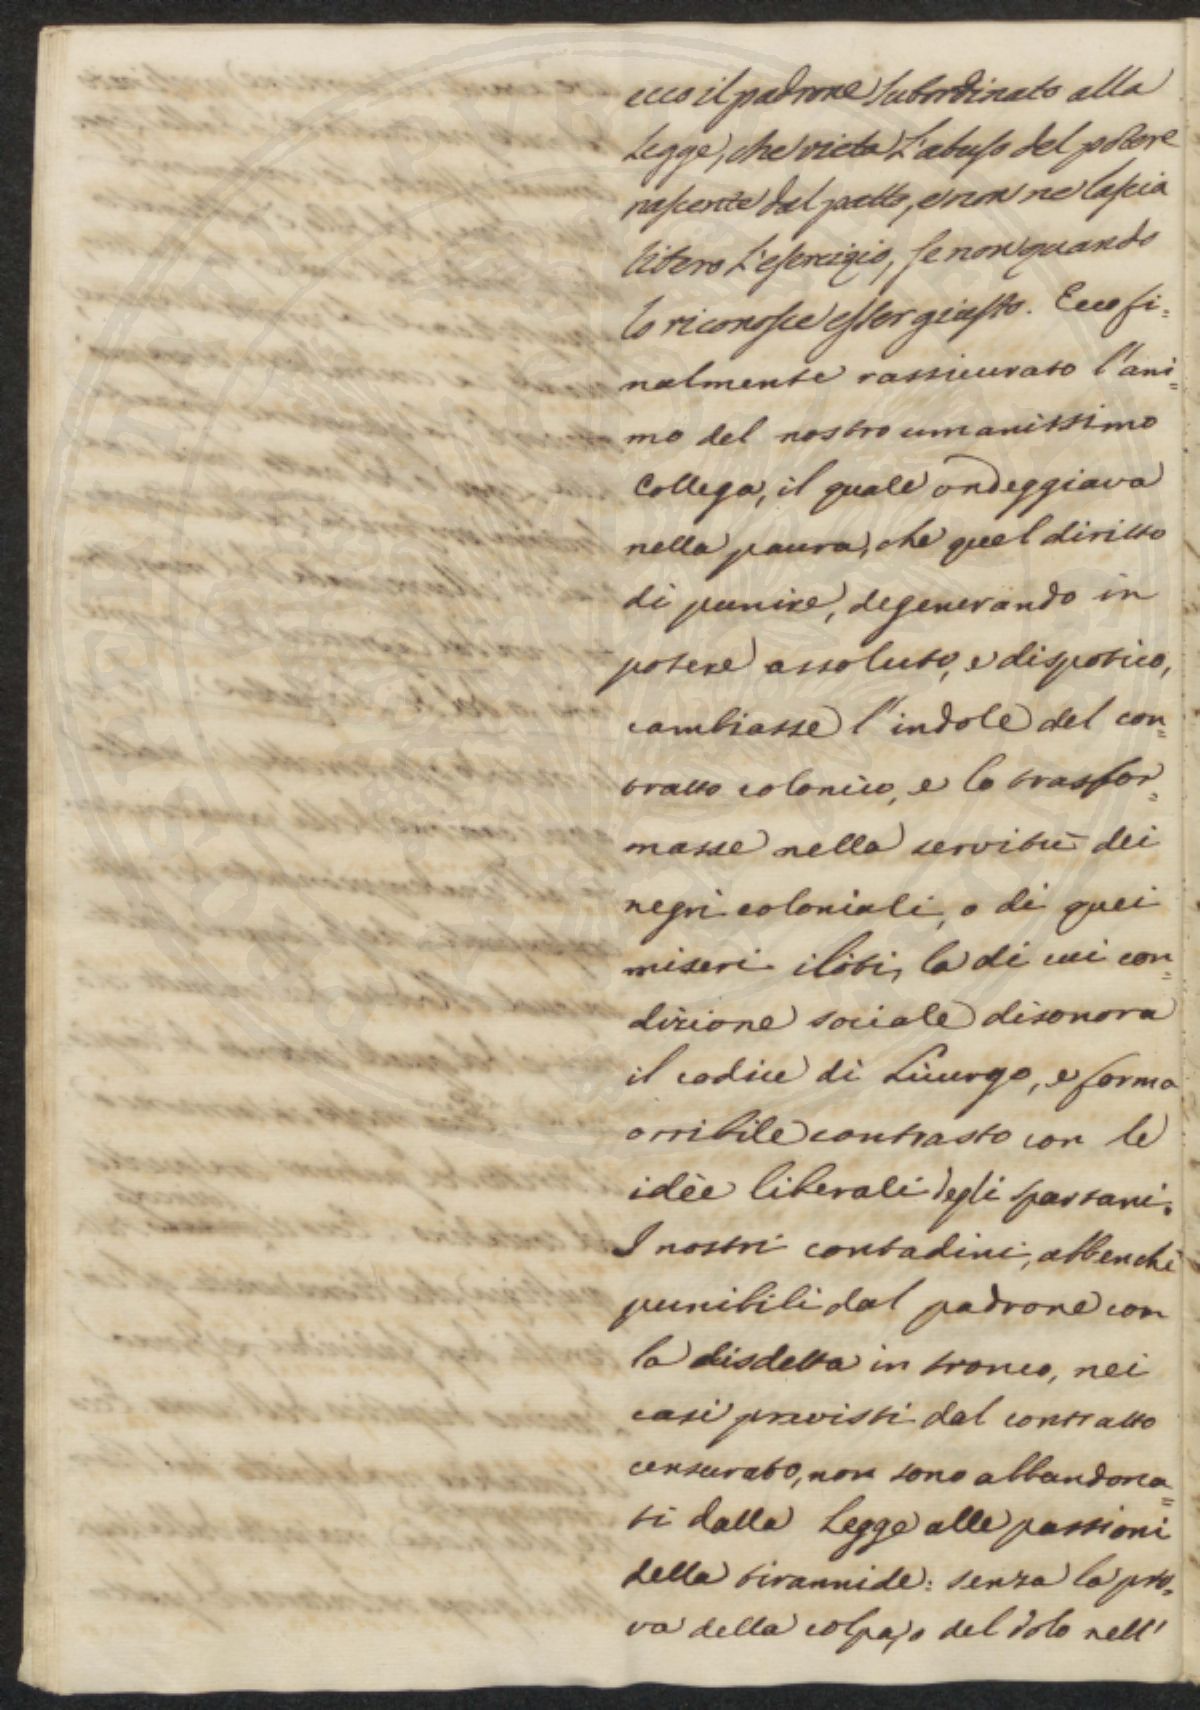 ecco il padrone subordinato alla
Legge, che vieta L'abuso del potere
nascente dal patto, e non ne lascia
libero L'esercizio, se non quando
lo riconosce esser giusto. Ecco fi=
nalmente rassicurato l'ani=
mo del nostro umanissimo
Collega, il quale ondeggiava
nella paura, che quel diritto
di punire, degenerando in
potere assoluto, e dispotico,
cambiasse l'indole del con=
tratto colonico, e lo trasfor=
masse nella servitù dei
negri coloniali, o di quei
miseri iloti, la di cui con=
dizione sociale disonora
il codice di Licurgo, e forma
orribile contrasto con le
idèe liberali degli Spartani.
I nostri contadini, abbenchè
punibili dal padrone con
la disdetta in tronco, nei
casi previsti dal contratto
censurato, non sono abbandona=
ti dalla Legge alle passioni
della tirannide: senza la pro=
va della colpa, o del dolo nell'